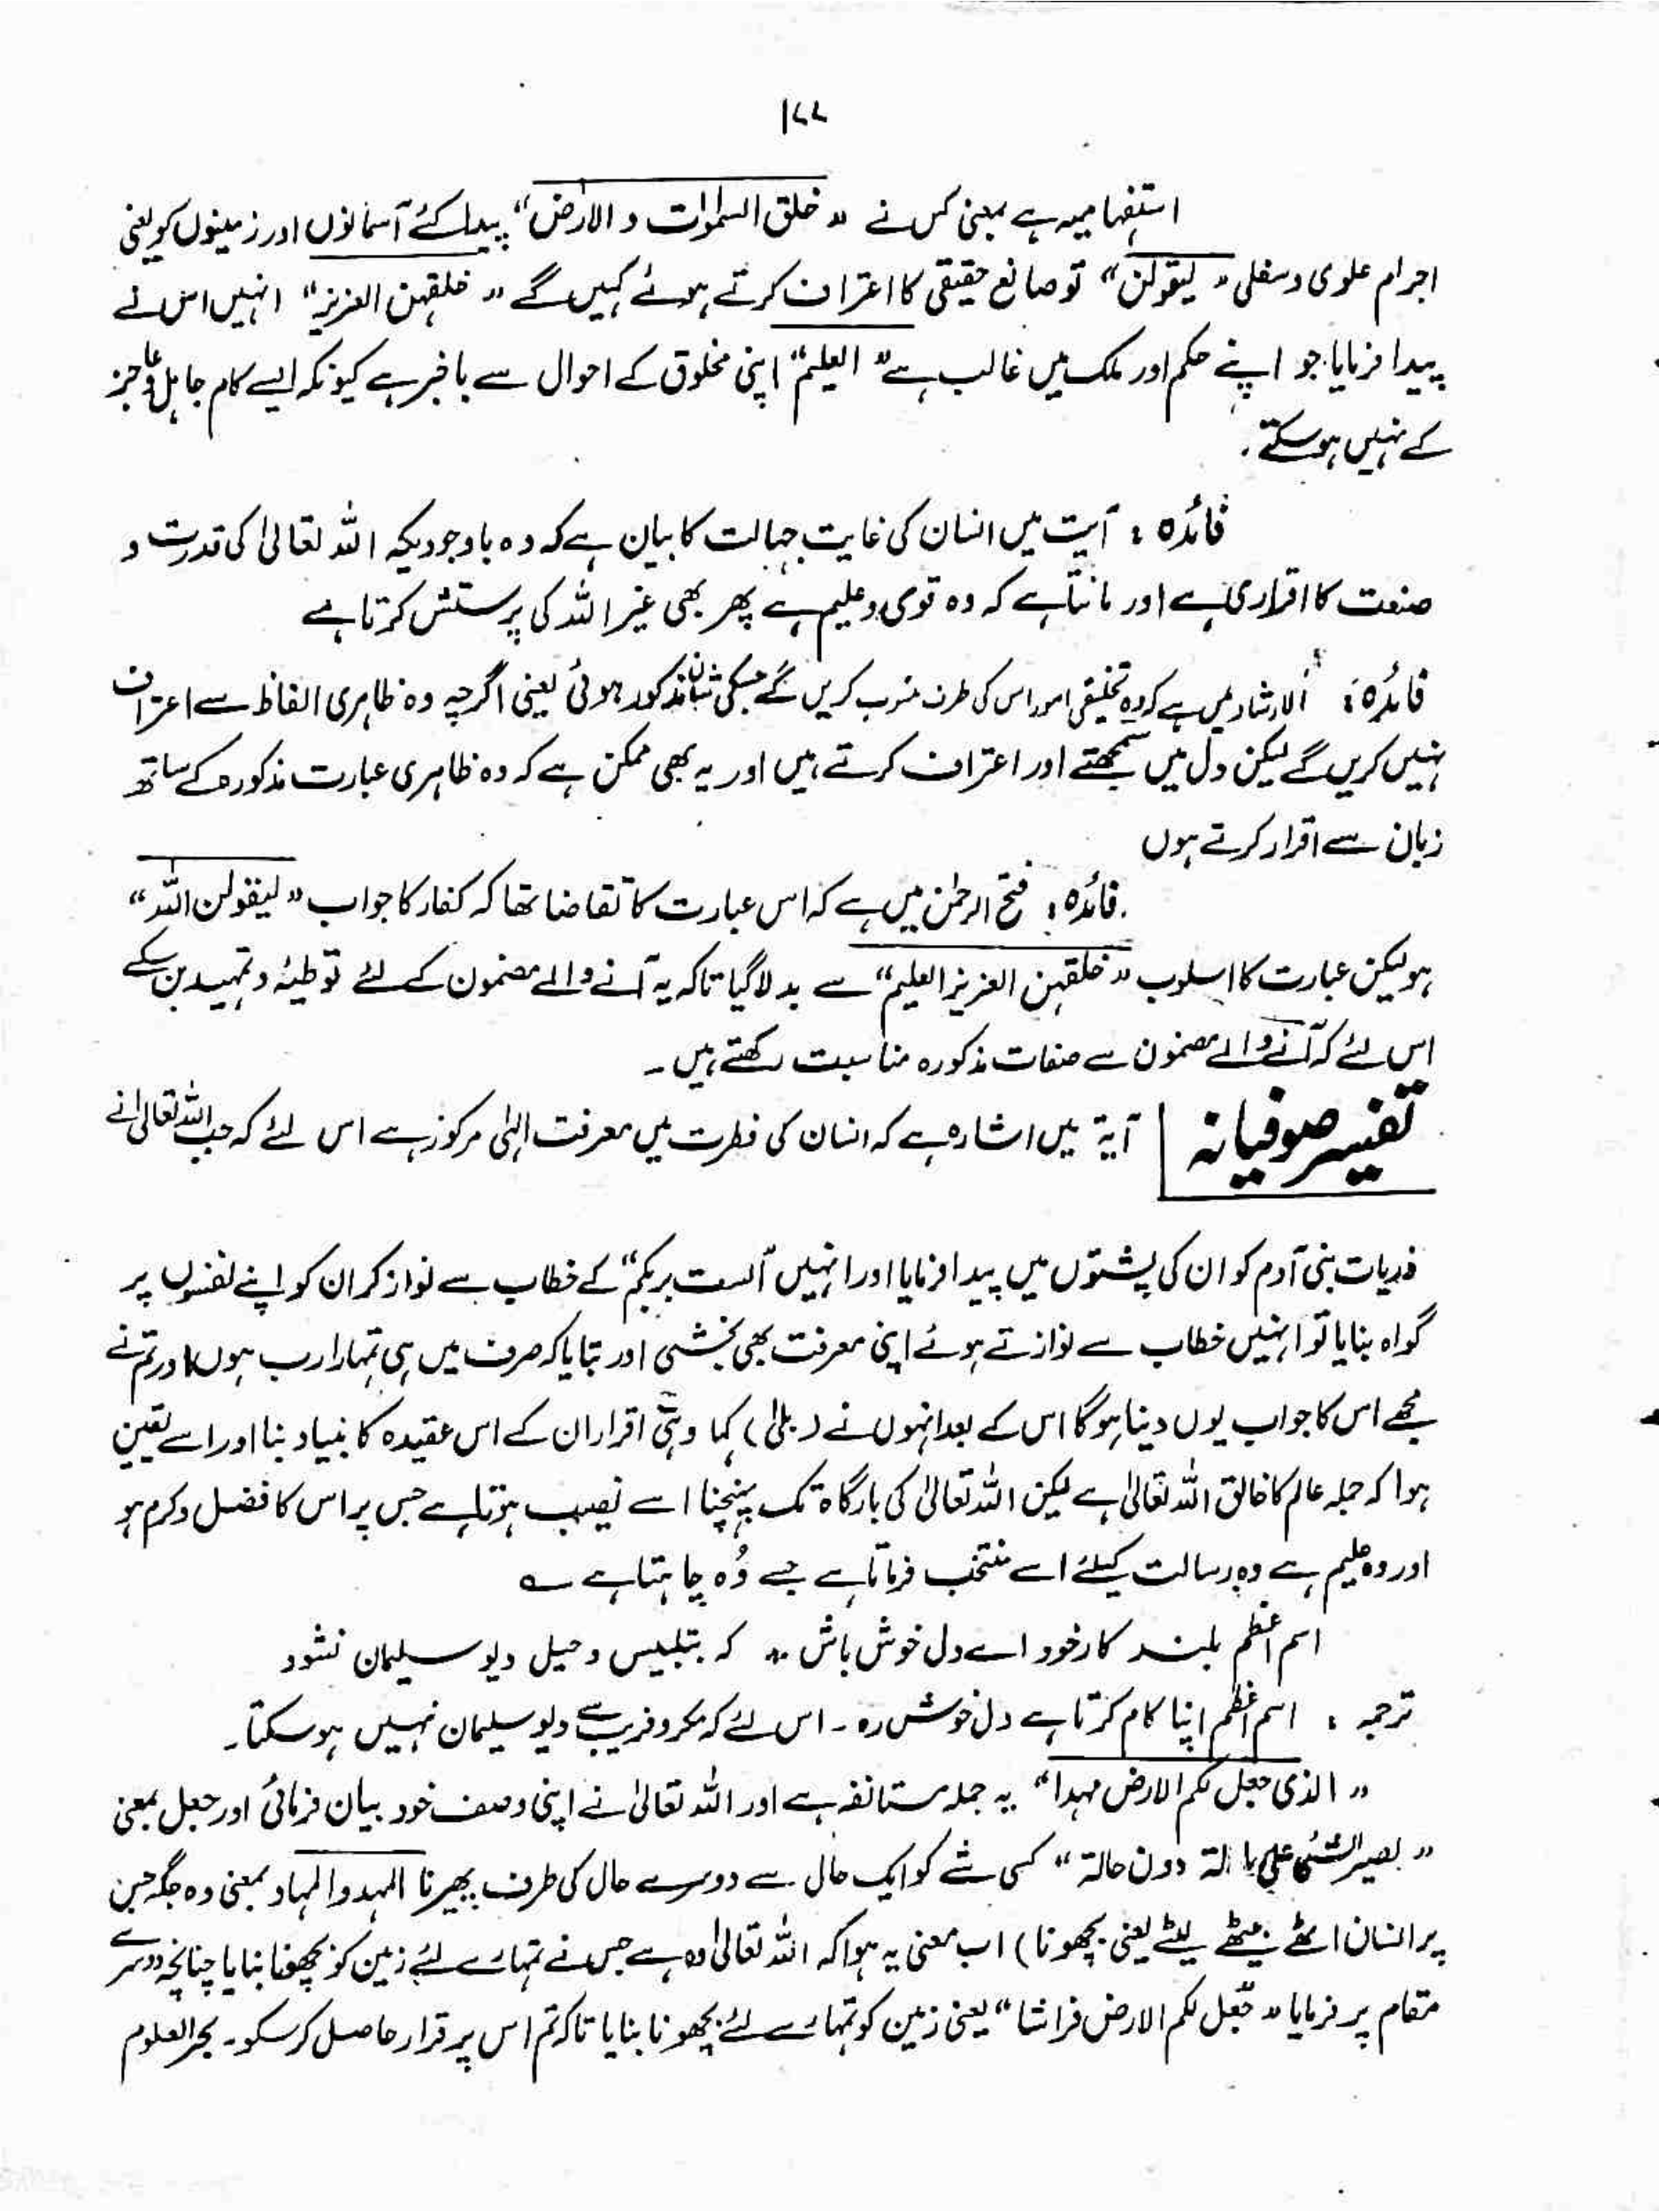 ۱۷۷
استفہامیہ ہے بمعنی کس نے " خلق السمٰوات و الارض " پیدا کئے آسمانوں اور زمینوں کو یعنی
اجرام علوی و سفلی " لیقولن " تو صانع حقیقی کا اعتراف کرتے ہوئے کہیں گے " خلقھن العزیز " انہیں اس نے
پیدا فرمایا جو اپنے حکم اور ملک میں غالب ہے " العلیم " اپنی مخلوق کے احوال سے باخبر ہے کیونکہ ایسے کام جاہل و عاجز
کے نہیں ہو سکتے .
فائدہ : آیت میں انسان کی غایت جہالت کا بیان ہے کہ وہ باوجودیکہ اللہ تعالیٰ کی قدرت و
صنعت کا اقراری ہے اور مانتا ہے کہ وہ قوی و علیم ہے پھر بھی غیر اللہ کی پرستش کرتا ہے
فائدہ : الارشاد میں ہے کہ وہ تخلیقی امور اس کی طرف منسوب کریں گے جسکی شان مذکور ہوئی یعنی اگرچہ وہ ظاہری الفاظ سے اعتراف
نہیں کریں گے لیکن دل میں سمجھتے اور اعتراف کرتے ہیں اور یہ بھی ممکن ہے کہ وہ ظاہری عبارت مذکورہ کے ساتھ
زبان سے اقرار کرتے ہوں
فائدہ : فتح الرحمٰن میں ہے کہ اس عبارت کا تقاضا تھا کہ کفار کا جواب " لیقولن اللہ "
ہو لیکن عبارت کا اسلوب " خلقھن العزیز العلیم " سے بدلا گیا تاکہ یہ آنے والے مضمون کے لئے توطیۂ و تمہید بن سکے
اس لئے کہ آنے والے مضمون سے صفات مذکورہ مناسبت رکھتے ہیں ۔
تفسیر صوفیانہ آیۃ میں اشارہ ہے کہ انسان کی فطرت میں معرفت الٰہی مرکوز ہے اس لئے کہ جب اللہ تعالیٰ نے
ذریات بنی آدم کو ان کی پشتوں میں پیدا فرمایا اور انہیں " الست بربکم " کے خطاب سے نواز کر ان کو اپنے نفسوں پر
گواہ بنایا تو انہیں خطاب سے نوازتے ہوئے اپنی معرفت بھی بخشی اور بتایا کہ صرف میں ہی تمہارا رب ہوں اور تم نے
مجھے اس کا جواب یوں دینا ہو گا اس کے بعد انہوں نے ( بلیٰ ) کہا وہی اقرار ان کے اس عقیدہ کا بنیاد بنا اور اسے یقین
ہوا کہ جملہ عالم کا خالق اللہ تعالیٰ ہے لیکن اللہ تعالیٰ کی بارگاہ تک پہنچنا اسے نصیب ہوتا ہے جس پر اس کا فضل و کرم ہو
اور وہ علیم ہے وہ رسالت کیلئے اسے منتخب فرماتا ہے جسے وُہ چاہتا ہے ؎
اسم اعظم بلند کار خود اے دل خوش باش ؞ کہ بتلبیس و حیل دیو سلیمان نشود
ترجمہ : اسم اعظم اپنا کام کرتا ہے دل خوش رہ ۔ اس لئے کہ مکر و فریب سے دیو سلیمان نہیں ہو سکتا ۔
" الذی جعل لکم الارض مہدا " یہ جملہ مستانفہ ہے اور اللہ تعالیٰ نے اپنی وصف خود بیان فرمائی اور جعل بمعنی
" بصیر الشئی علی حالۃ دون حالۃ " کسی شے کو ایک حال سے دوسرے حال کی طرف پھیرنا المہد والمہاد بمعنی وہ جگہ جس
پر انسان اٹھے بیٹھے لیٹے یعنی بچھونا ) اب معنی یہ ہوا کہ اللہ تعالیٰ وہ ہے جس نے تمہارے لئے زمین کو بچھونا بنایا چنانچہ دوسرے
مقام پر فرمایا " جعل لکم الارض فراشا " یعنی زمین کو تمہارے لئے بچھونا بنایا تاکہ تم اس پر قرار حاصل کر سکو ۔ بحر العلوم